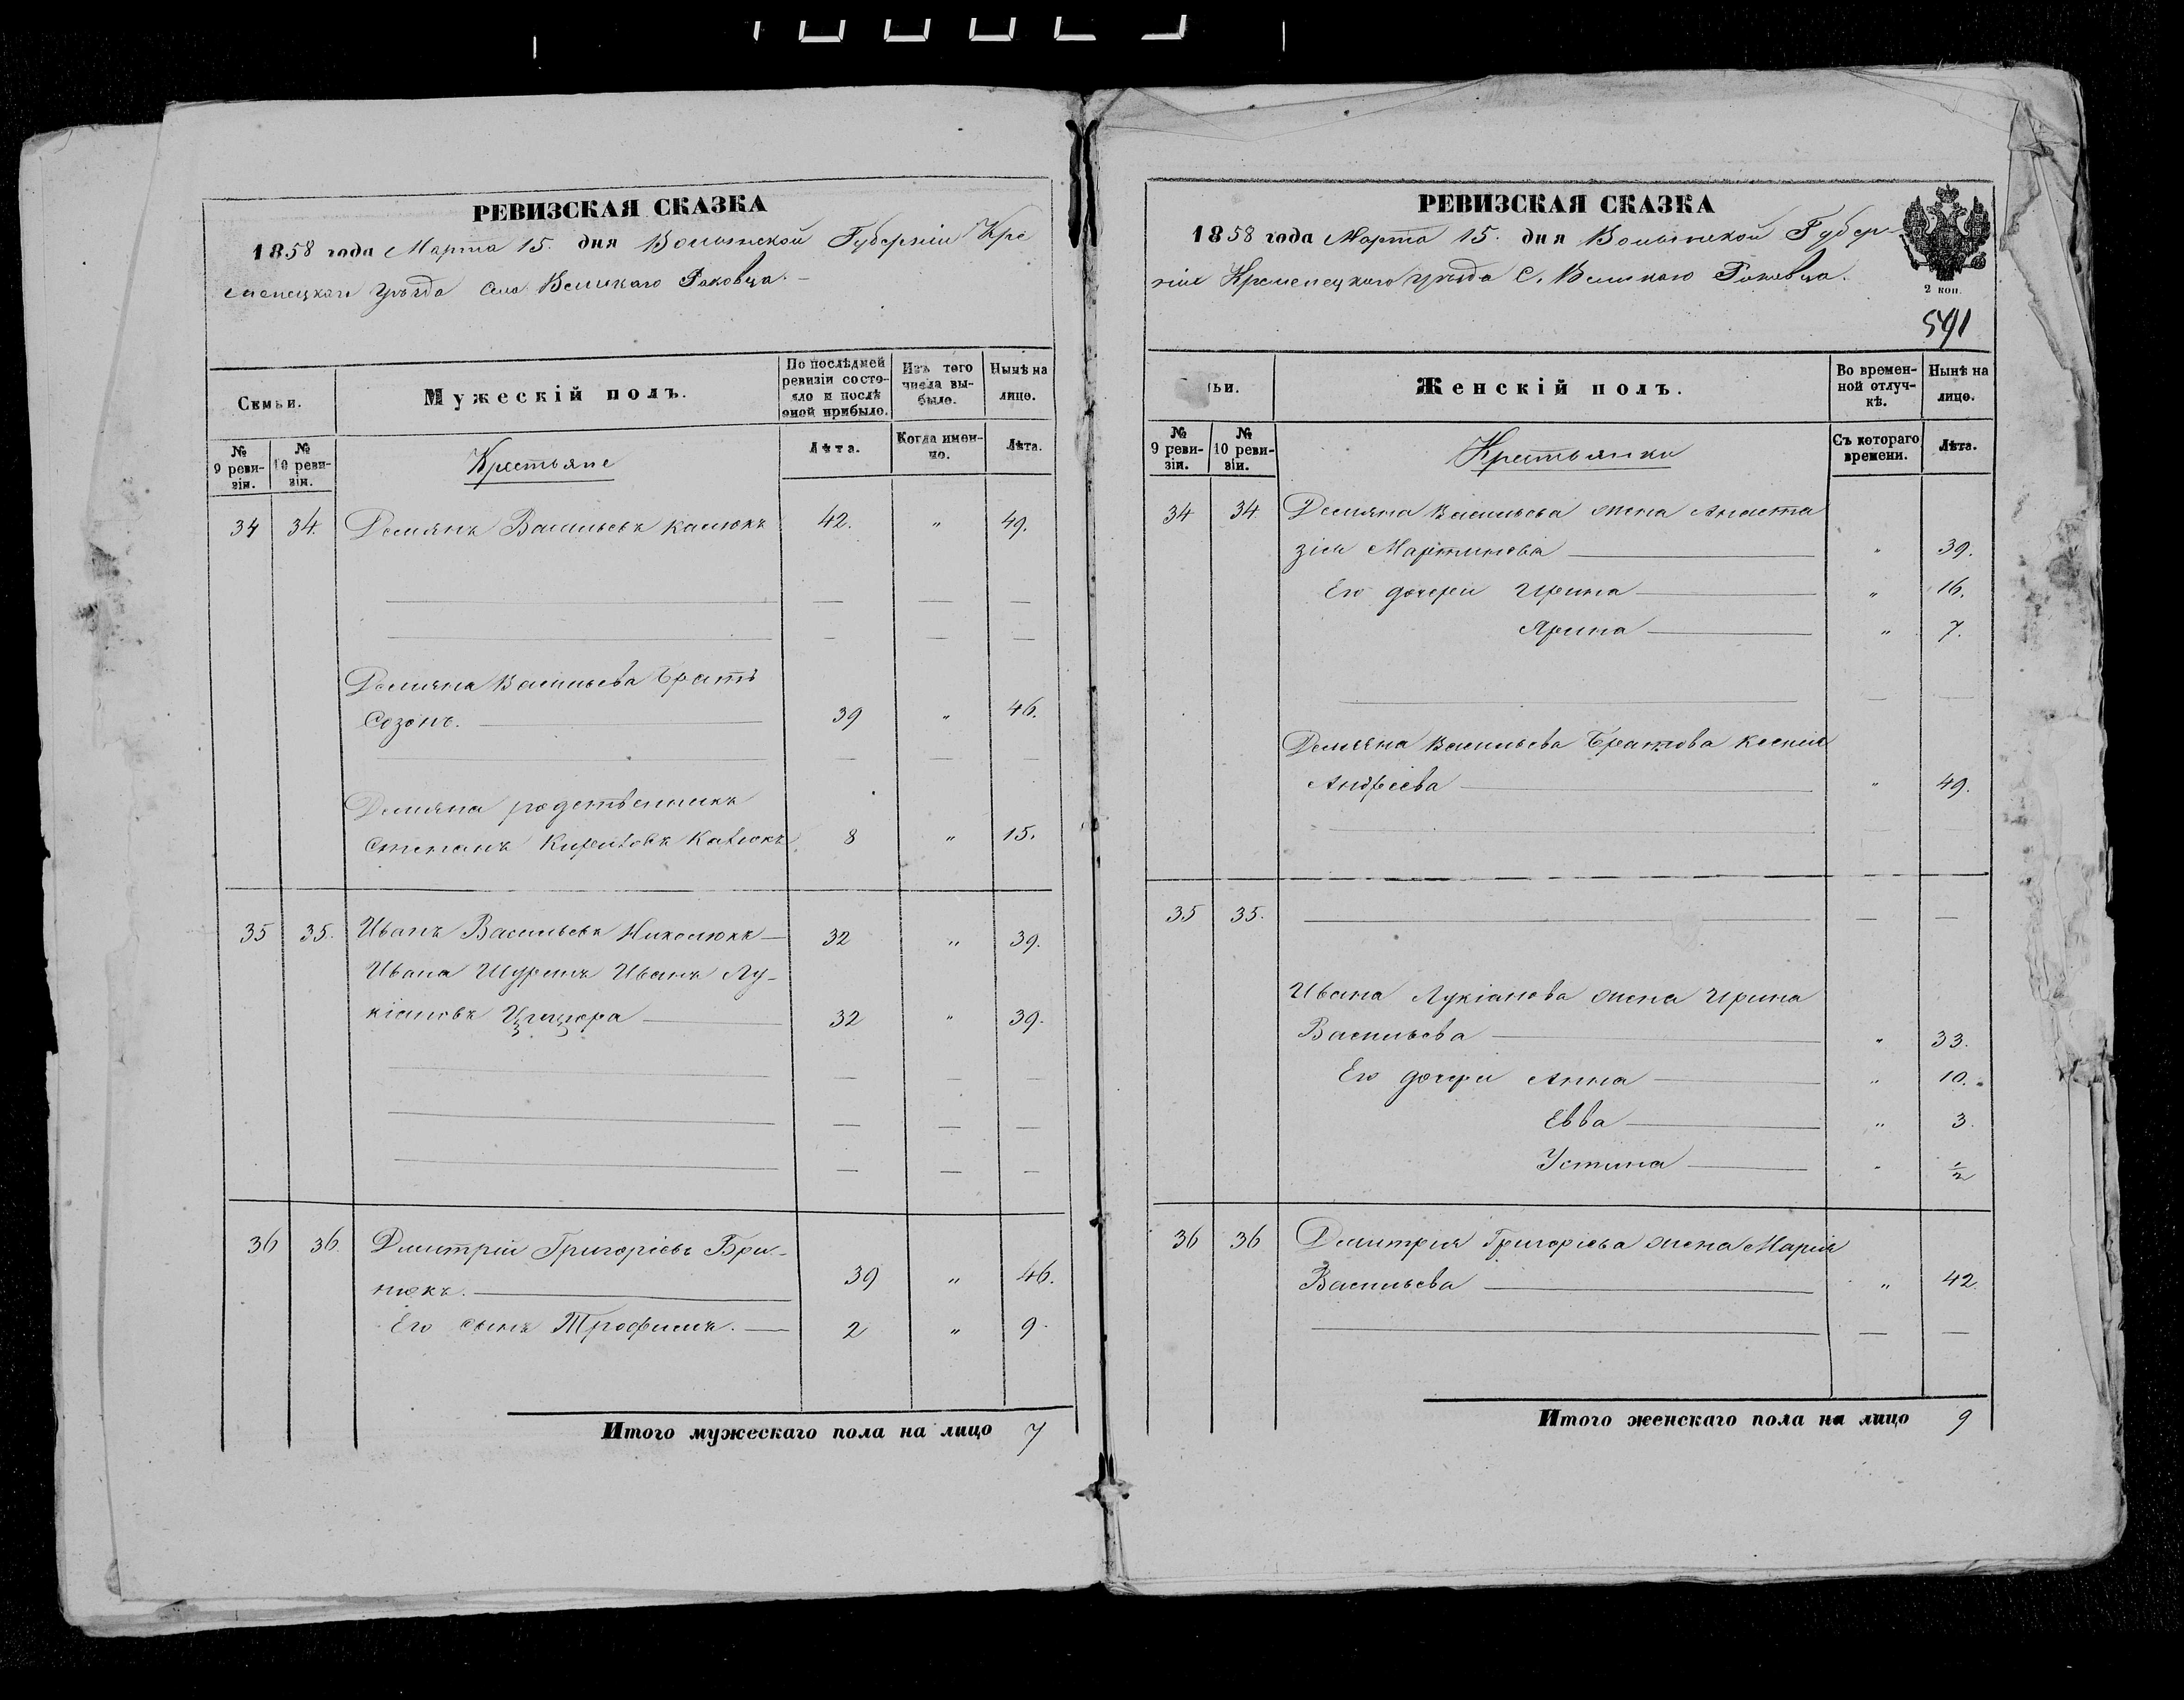 РЕВИЗСКАЯ СКАЗКА
1858 года Марта 15. дня Волынской Губерніи Кре
менецкаго уѣзда села Великаго Раковца.
Семьи.
Мужескій полъ.
По послѣдней ревизіи состояло и послѣ оной прибыло.
Изъ того числа выбыло.
Нынѣ на лицо.
№ 9 ревизіи.
№ 10 ревизіи.
Крестьяне
Лѣта.
Когда именно.
Лѣта.
34 34. Демянъ Васильевъ 42. " 49.
Демяна Васильева братъ
Созонъ. 39 " 46.
Демяна родственникъ
Степанъ 8 " 15.
35 35. Иванъ Васильевъ Николюкъ 32 " 39.
Ивана Шуринъ Иванъ Лу-
кіановъ 32 " 39.
36 36. Дмитрій Григоріевъ Бри-
нюкъ. 39 " 46.
Его сынъ Трофимъ. 2 " 9.
Итого мужескаго пола на лицо 7
РЕВИЗСКАЯ СКАЗКА
1858 года Марта 15. дня Волынской Губер-
ніи Кременецкаго уѣзда С. Великаго Раковца.
2 коп.
591
ьи.
Женскій полъ.
Во временной отлучкѣ.
Нынѣ на лицо.
№ 9 ревизіи.
№ 10 ревизіи.
Крестьянки
Съ котораго времени.
Лѣта.
34 34. Демяна Васильева жена Анаста
зія Мартинова " 39.
Его дочери Ирина " 16.
Ярина " 7.
Демяна Васильева братова Ксенія
Андреева " 49.
35 35.
Ивана Лукіанова жена Ирина
Васильева " 33.
Его дочери Анна " 10.
Евва " 3.
Устина " 1/2
36 36 Дмитрія Григоріева жена Марія
Васильева " 42
Итого женскаго пола на лицо 9